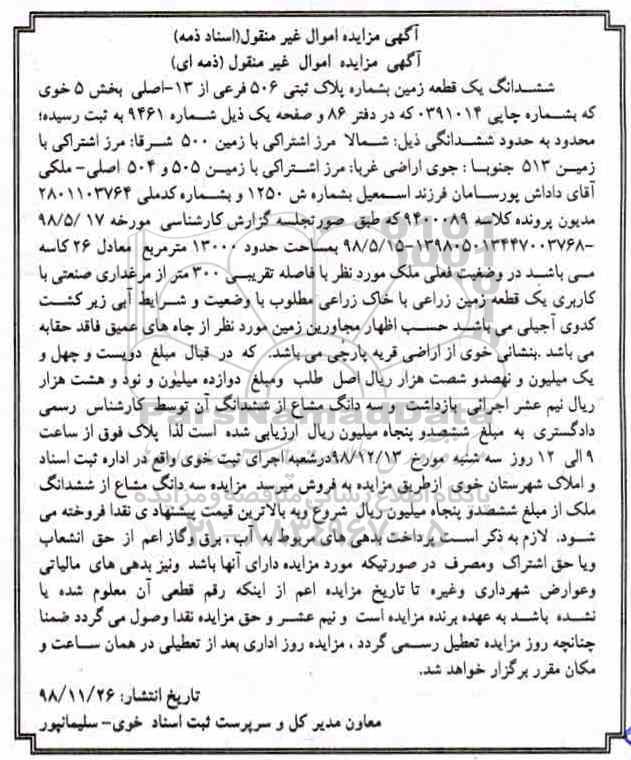 آگهی مزایده اموال غیر منقول(اسناد ذمه)
آگهی مزایده اموال غیر منقول (ذمه ای)
ششدانگ یک قطعه زمین بشماره پلاک ثبتی ۵۰۶ فرعی از ۱۳-اصلی بخش ۵ خوی
که بشماره چاپی ۰۳۹۱۰۱۴ که در دفتر ۸۶ و صفحه یک ذیل شماره ۹۴۶۱ به ثبت رسیده؛
محدود به حدود ششدانگی ذیل: شمالا مرز اشتراکی با زمین ۵۰۰ شرقا: مرز اشتراکی با
زمین ۵۱۳ جنوبا : جوی اراضی غربا: مرز اشتراکی با زمین ۵۰۵ و ۵۰۴ اصلی- ملکی
آقای داداش پورسامان فرزند اسمعیل بشماره ش ۱۲۵۰ و بشماره کدملی ۲۸۰۱۱۰۳۷۶۴
مدیون پرونده کلاسه ۹۴۰۰۰۸۹ که طبق صورتجلسه گزارش کارشناسی مورخه ۱۷ /۹۸/۵
-۱۳۹۸۰۵۰۱۳۴۴۷۰۰۳۷۶۸-۹۸/۵/۱۵ بمساحت حدود ۱۳۰۰۰ مترمربع معادل ۲۶ کاسه
می باشد در وضعیت فعلی ملک مورد نظر با فاصله تقریبی ۳۰۰ متر از مرغداری صنعتی با
کاربری یک قطعه زمین زراعی با خاک زراعی مطلوب با وضعیت و شرایط آبی زیر کشت
کدوی آجیلی می باشد حسب اظهار مجاورین زمین مورد نظر از چاه های عمیق فاقد حقابه
می باشد .بنشانی خوی از اراضی قریه پارچی می باشد. که در قبال مبلغ دویست و چهل و
یک میلیون و نهصدو شصت هزار ریال اصل طلب ومبلغ دوازده میلیون و نود و هشت هزار
ریال نیم عشر اجرائی بازداشت و سه دانگ مشاع از ششدانگ آن توسط کارشناس رسمی
دادگستری به مبلغ ششصدو پنجاه میلیون ریال ارزیابی شده است لذا پلاک فوق از ساعت
۹ الی ۱۲ روز سه شنبه مورخ ۹۸/۱۲/۱۳درشعبه اجرای ثبت خوی واقع در اداره ثبت اسناد
و املاک شهرستان خوی ازطریق مزایده به فروش میرسد مزایده سه دانگ مشاع از ششدانگ
ملک از مبلغ ششصدو پنجاه میلیون ریال شروع وبه بالاترین قیمت پیشنهاد ی نقدا فروخته می
شود. لازم به ذکر است پرداخت بدهی های مربوط به آب ، برق وگاز اعم از حق انشعاب
ویا حق اشتراک ومصرف در صورتیکه مورد مزایده دارای آنها باشد ونیز بدهی های مالیاتی
وعوارض شهرداری وغیره تا تاریخ مزایده اعم از اینکه رقم قطعی آن معلوم شده یا
نشده باشد به عهده برنده مزایده است و نیم عشر و حق مزایده نقدا وصول می گردد ضمنا
چنانچه روز مزایده تعطیل رسمی گردد ، مزایده روز اداری بعد از تعطیلی در همان ساعت و
مکان مقرر برگزار خواهد شد.
تاریخ انتشار: ۹۸/۱۱/۲۶
معاون مدیر کل و سرپرست ثبت اسناد خوی- سلیمانپور
ParsNamadData
پایگاه اطلاع رسانی مناقصه و مزایده